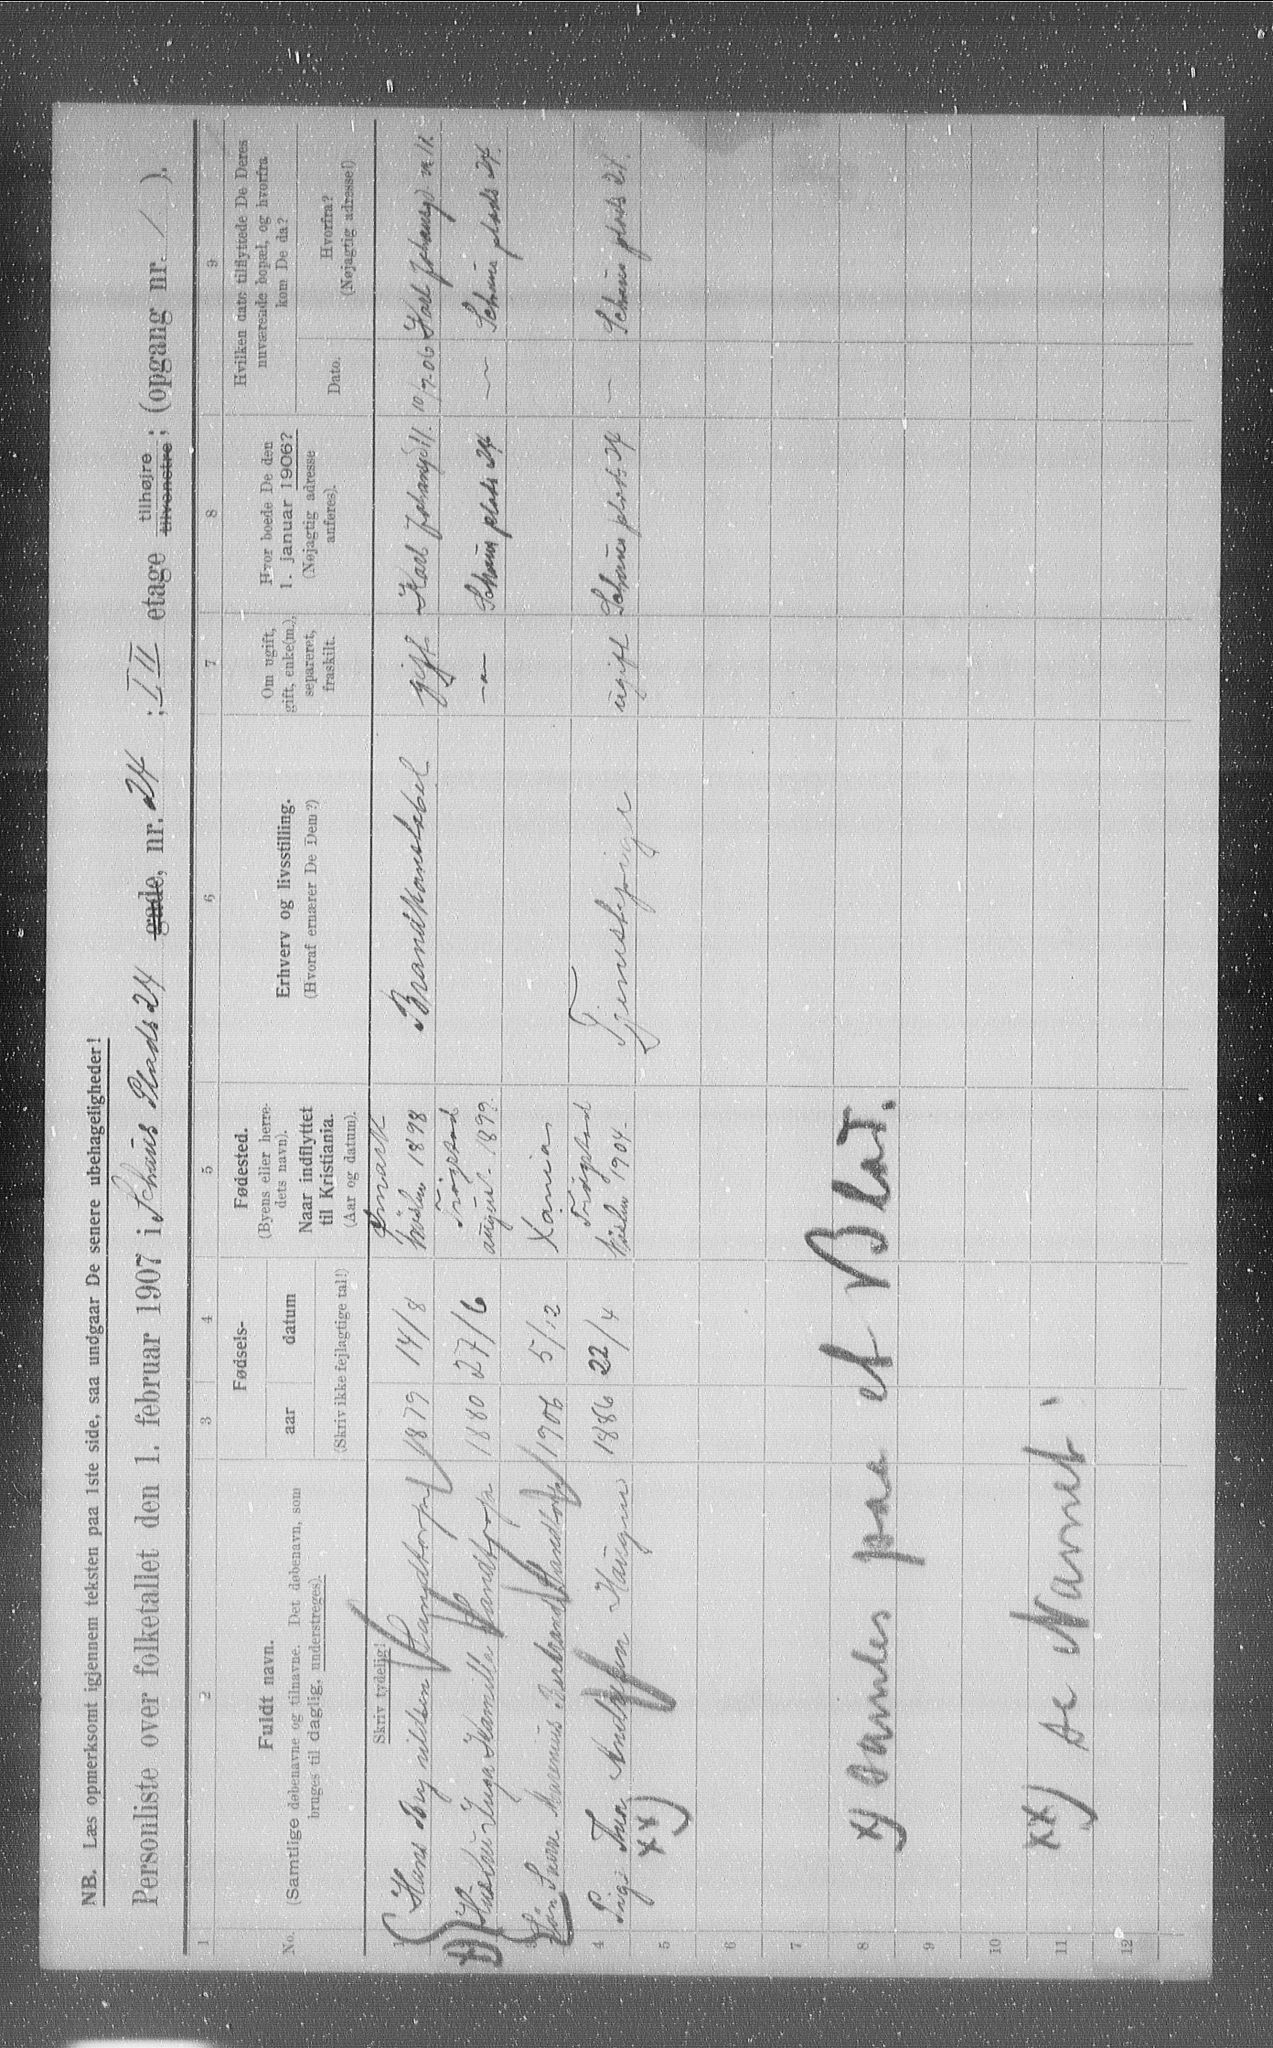 NB. Læs opmerksomt igjennem teksten paa 1ste side, saa undgaar De senere ubehageligheder!
Personliste over folketallet den 1. februar 1907 i Schous Plads 24 gade, nr. 24 ; III etage tilhøjre tilvenstre ; (opgang nr. / ).
1 2 3 4 5 6 7 8 9
No.
Fuldt navn.
(Samtlige døbenavne og tilnavne. Det døbenavn, som
bruges til daglig, understreges).
Skriv tydelig!
Fødsels-
aar datum
(Skriv ikke fejlagtige tal!)
Fødested.
(Byens eller herre-
dets navn).
Naar indflyttet
til Kristiania.
(Aar og datum).
Erhverv og livsstilling.
(Hvoraf ernærer De Dem?)
Om ugift,
gift, enke(m.),
separeret,
fraskilt.
Hvor boede De den
1. januar 1906?
(Nøjagtig adresse
anføres).
Hvilken dato tilflyttede De Deres
nuværende bopæl, og hvorfra
kom De da?
Dato.
Hvorfra?
(Nøjagtig adresse!)
1 Hans 1879 14/8 1898 Brandkonstabel gift Karl Johansgd 11. 10/7-06 Karl Johansgd n 11.
2 Hustru Inga Kamilla Sandtorp 1880 27/6 Trøgstad august 1899. —"— Schous plads 24 — Schous plads 24.
3 Søn Marenius Sandtorp 1906 5/12 Xania
4 Pige Thea Andrea Haugen 1886 22/4 Trøgstad 1904 Tjenestepige ugift Schous plads 24 — Schous plads 24.
xx)
5
6
7
8 x) Samles paa et Blad.
9
10
11 xx) se Navnet.
12